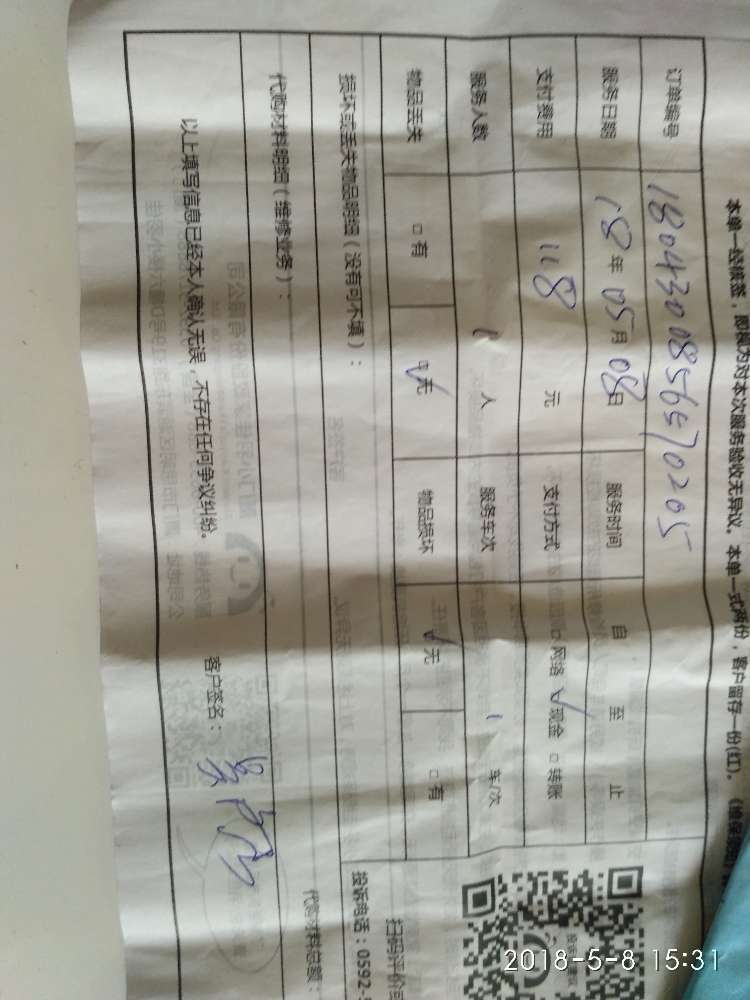 本单一经核签，即视为对本次服务验收无异议。本单一式两份，客户留存一份(红)。
订单编号 1804300856570205
服务日期 18年05月08日 服务时间 自 至 止
支付费用 118 元 支付方式 网络 √现金 □转账
服务人数 1 人 服务车次 1 车/次
物品丢失 □有 √无 物品损坏 √无 □有
损坏或丢失物品明细（没有可不填）：
扫码评价
投诉电话：0592-
代购材料明细（维修业务）：
代购材料总额：
以上填写信息已经本人确认无误，不存在任何争议纠纷。 客户签名：
2018-5-8 15:31